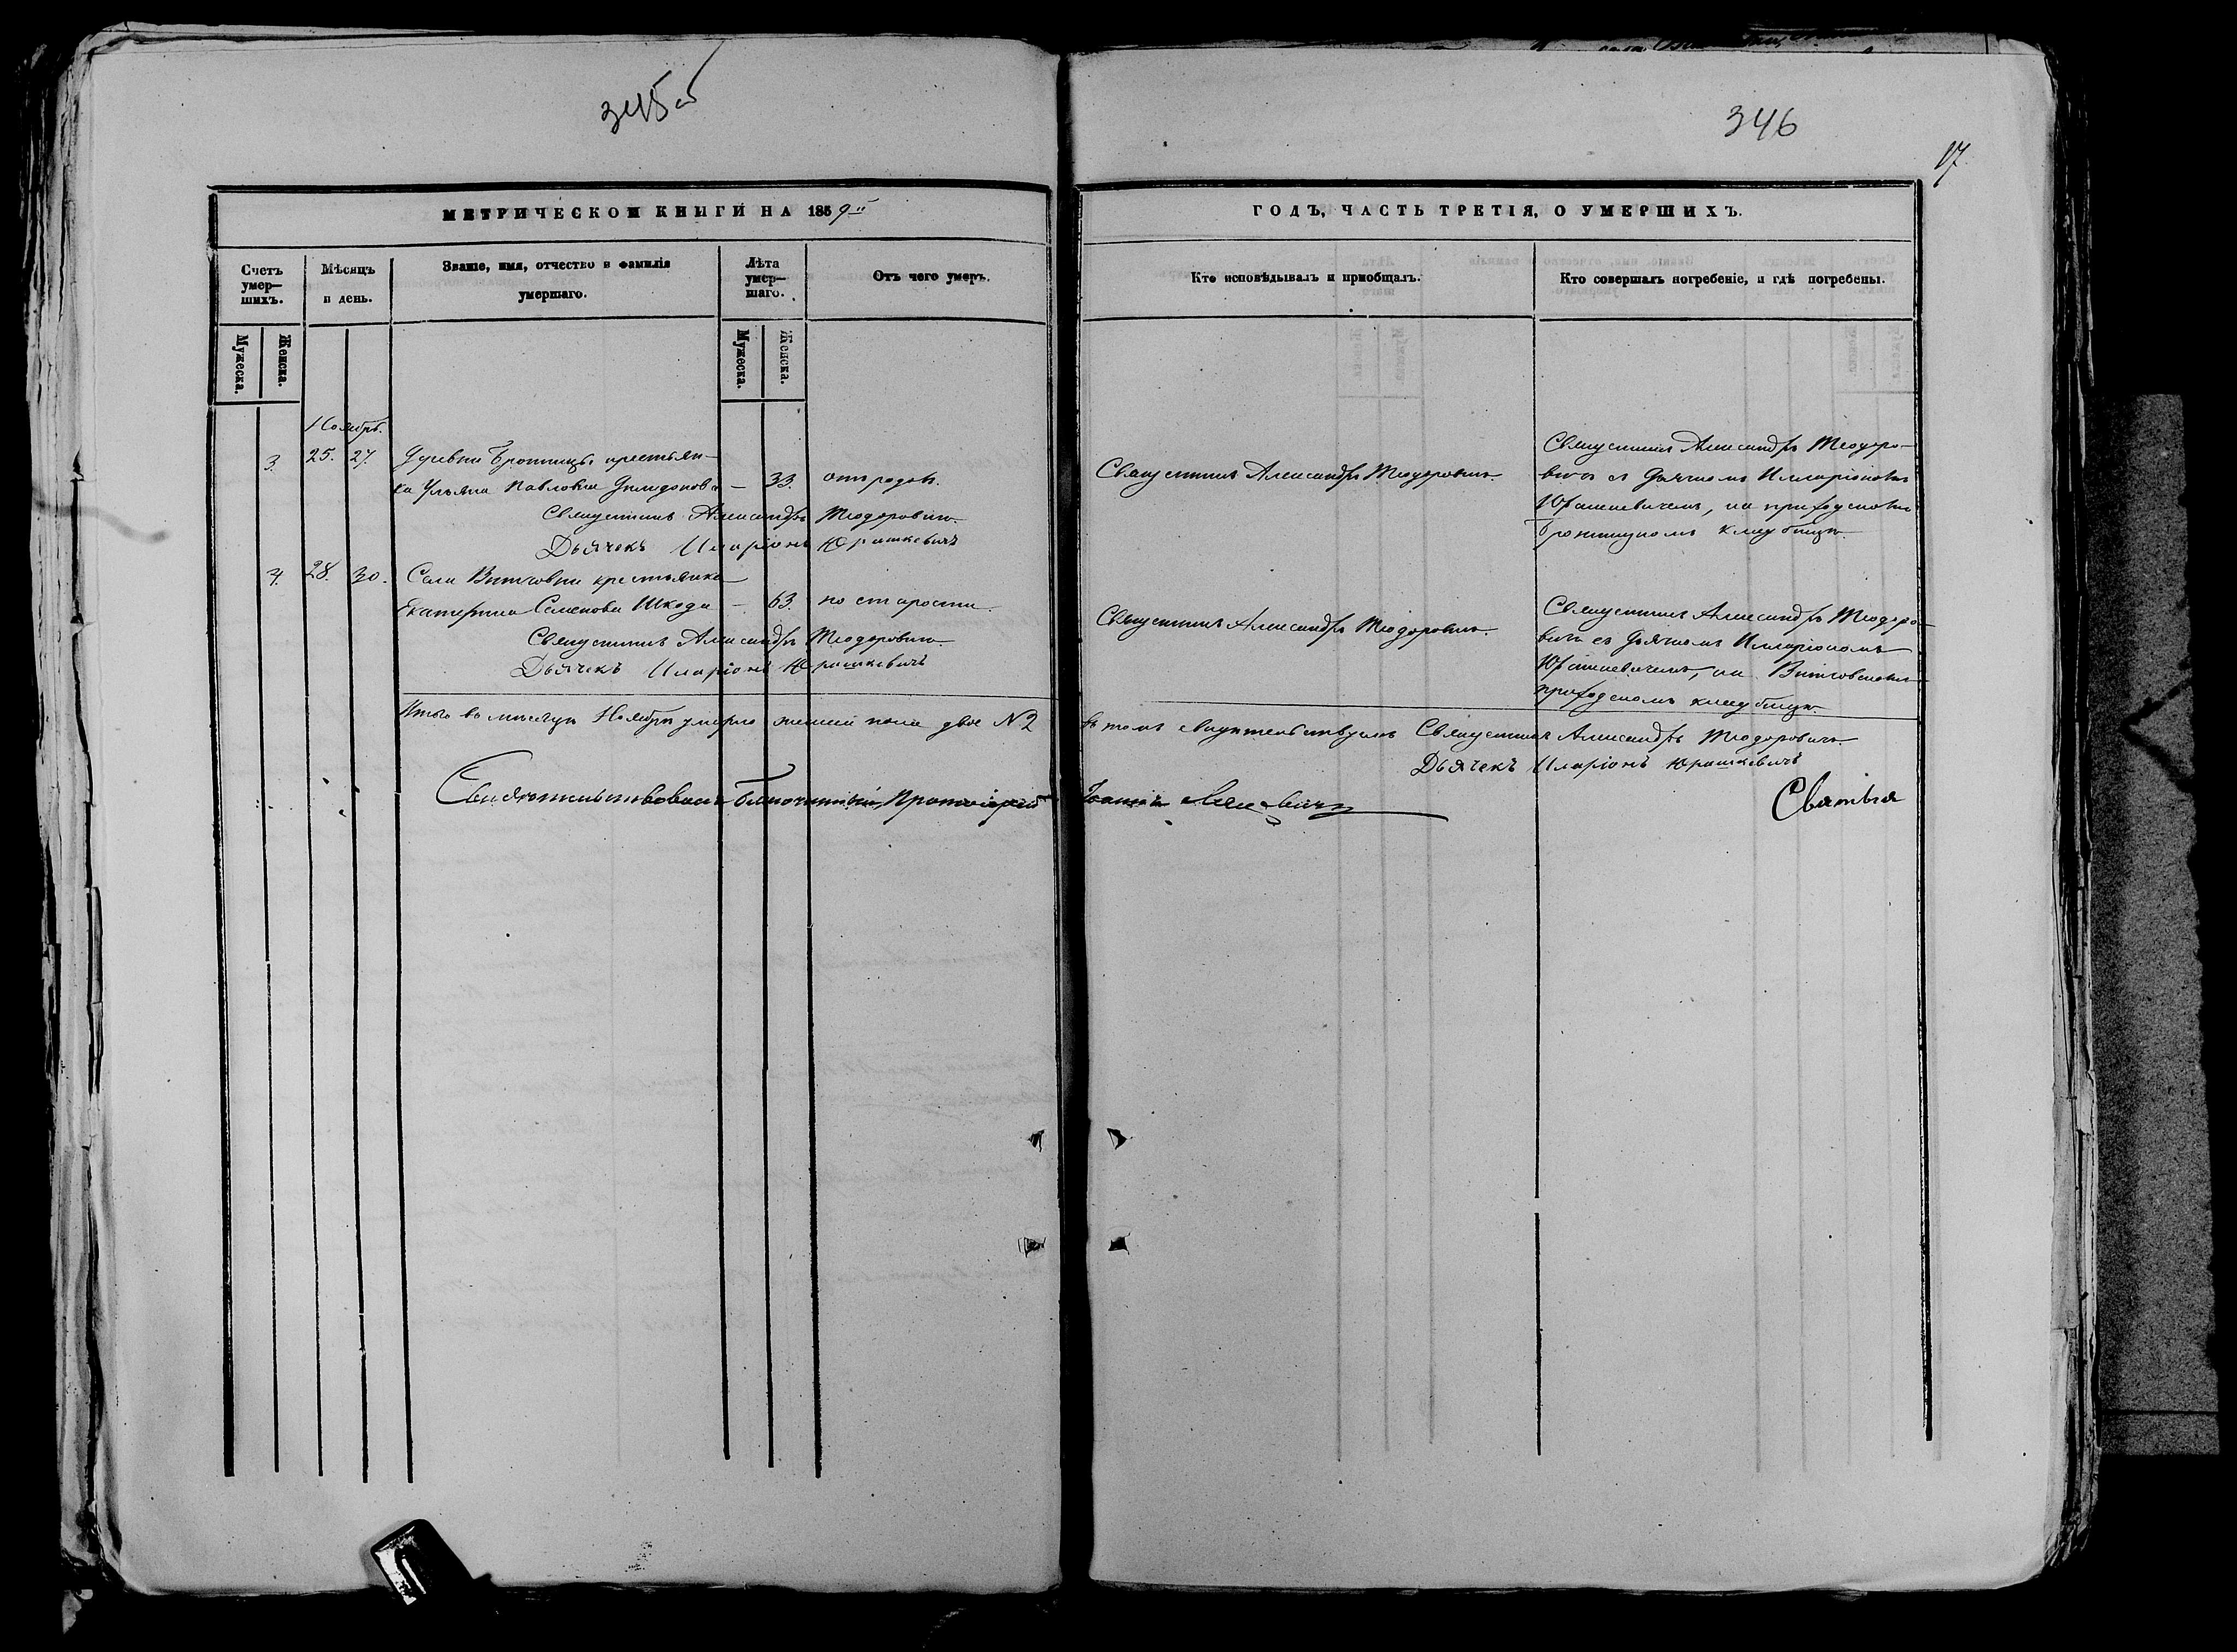 345об
346
17
МЕТРИЧЕСКОЙ КНИГИ НА 1859й
ГОДЪ, ЧАСТЬ ТРЕТІЯ, О УМЕРШИХЪ.
Счетъ умер—шихъ.
Мѣсяцъ и день.
Званіе, имя, отчество и фамилія умершаго.
Лѣта умер—шаго.
Отъ чего умеръ.
Кто исповѣдывалъ и приобщалъ.
Кто совершалъ погребеніе, и гдѣ погребены.
Мужеска.
Женска.
Мужеска.
Женска.
Ноябрь.
3. 25. 27. Деревни Бронницъ крестьян-
ка Ульяна Павловна — 33. отъ родовъ.
Священникъ Александръ Теодоровичъ.
Дьячекъ Иларіонъ Юрашкевичъ
4. 28. 30. Села Витчовки крестьянка
Екатерина Семенова Шкода — 63. по старости.
Священникъ Александръ Теодоровичъ
Дьячекъ Иларіонъ Юрашкевичъ
Итого въ мѣсяцѣ Ноябрѣ умерло женска пола двое №2
Священникъ Александръ Теодоровичъ.
Священникъ Александръ Теодоро-
вичъ съ Дьячкомъ Илларіономъ
Юрашкевичемъ, на приходскомъ
кладбищѣ.
Священникъ Александръ Теодоровичъ.
Священникъ Александръ Теодоро-
вичъ съ Дьячкомъ Илларіономъ
Юрашкевичемъ, на Витчовскомъ
приходскомъ кладбищѣ.
въ томъ свидѣтельствуемъ Священникъ Александръ Теодоровичъ.
Дьячекъ Иларіонъ Юрашкевичъ
Свидѣтельствовалъ Благочинный, Протоіерей Іоаннъ